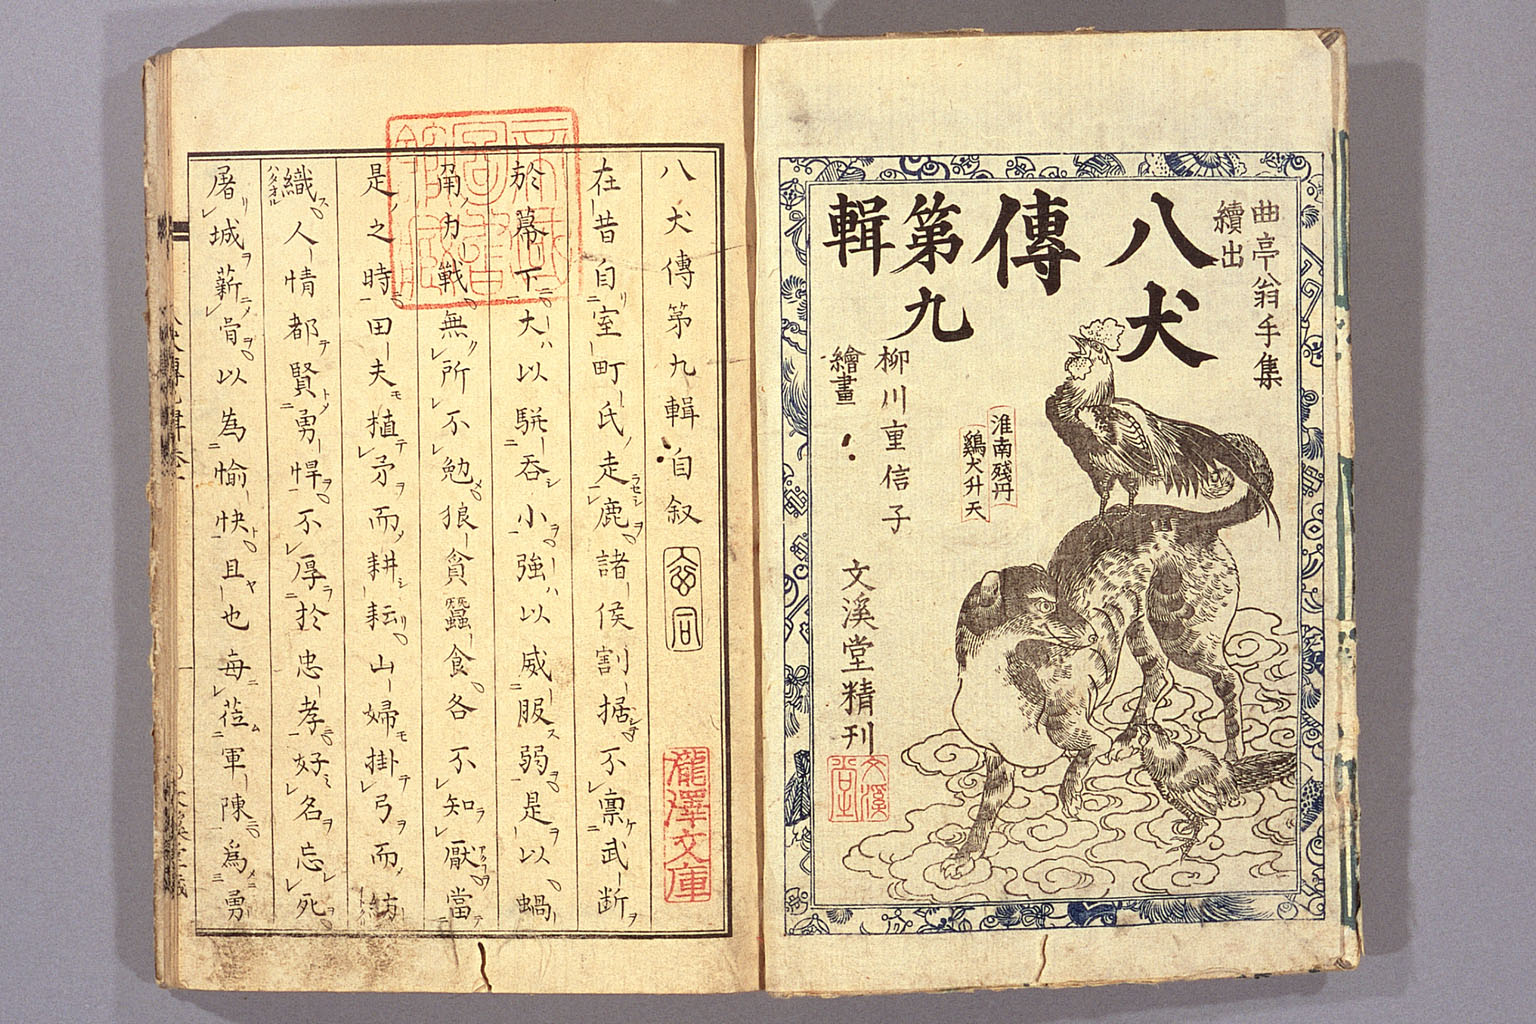 曲亭翁手集
續出
八犬
傳
第九
輯
柳川重信子
繪畫
淮南殘丹
鷄犬升天
文溪堂精刊
文溪
堂
八犬傳第九輯自叙
瀧澤文庫
在昔自室町氏走鹿諸侯割据不稟武断
於幕下大以駢吞小強以威服弱是以蝸
角力戰無所不勉狼貪蠶食各不知厭當
是之時田夫植矛而耕耘山婦掛弓而紡
織人情都賢勇悍不厚於忠孝好名忘死
屠城薪骨以為愉快且也每莅軍陳爲勇